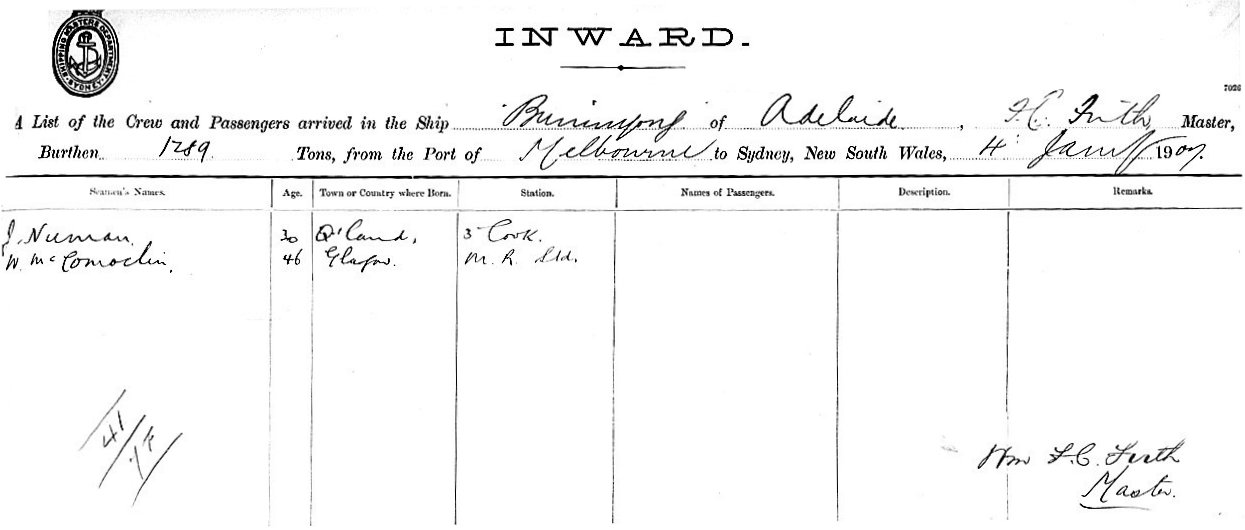 SHIPPING MASTERS DEPARTMENT SYDNEY
INWARD.
7026
A List of the Crew and Passengers arrived in the Ship Buninyong of Adelaide, F.C. Firth, Master,
Burthen 1289 Tons, from the Port of Melbourne to Sydney, New South Wales, 4 Jany 1907.
Seamen's Names. Age. Town or Country where Born. Station. Names of Passengers. Description. Remarks.
J. Numan. 30 Q'land, 3 Cook.
W. Mc 46 Glasgow. M. R. Std.
41
Wm F.C. Firth
Master.